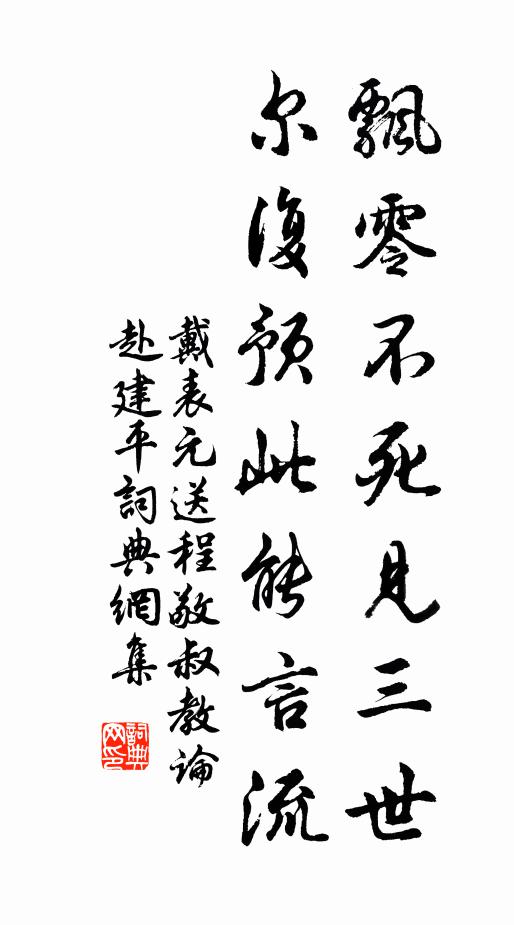 飄零不死見三世
尔復預此能言流
戴表元送程敬叔教論
赴建平詞典網集
詞典
网印